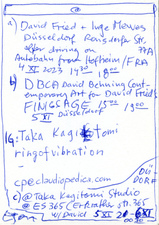 a) David Fried + Inge Mewes
Düsseldorf
Autobahn from Hofheim/FRA
5 XI 2023 14 30 18 00
b) DBCA David Behning Cont-
emporary Art for David Fried
FINISSAGE 15 00 19 00
5 XI Düsseldorf
IG: Taka Kagitomi
ringofvibration
cp@claudiopedica.com
c) @Taka Kagitomi Studio
@ES365 Erkrather Str. 365
w/David 5 XI 20 - 6 XI